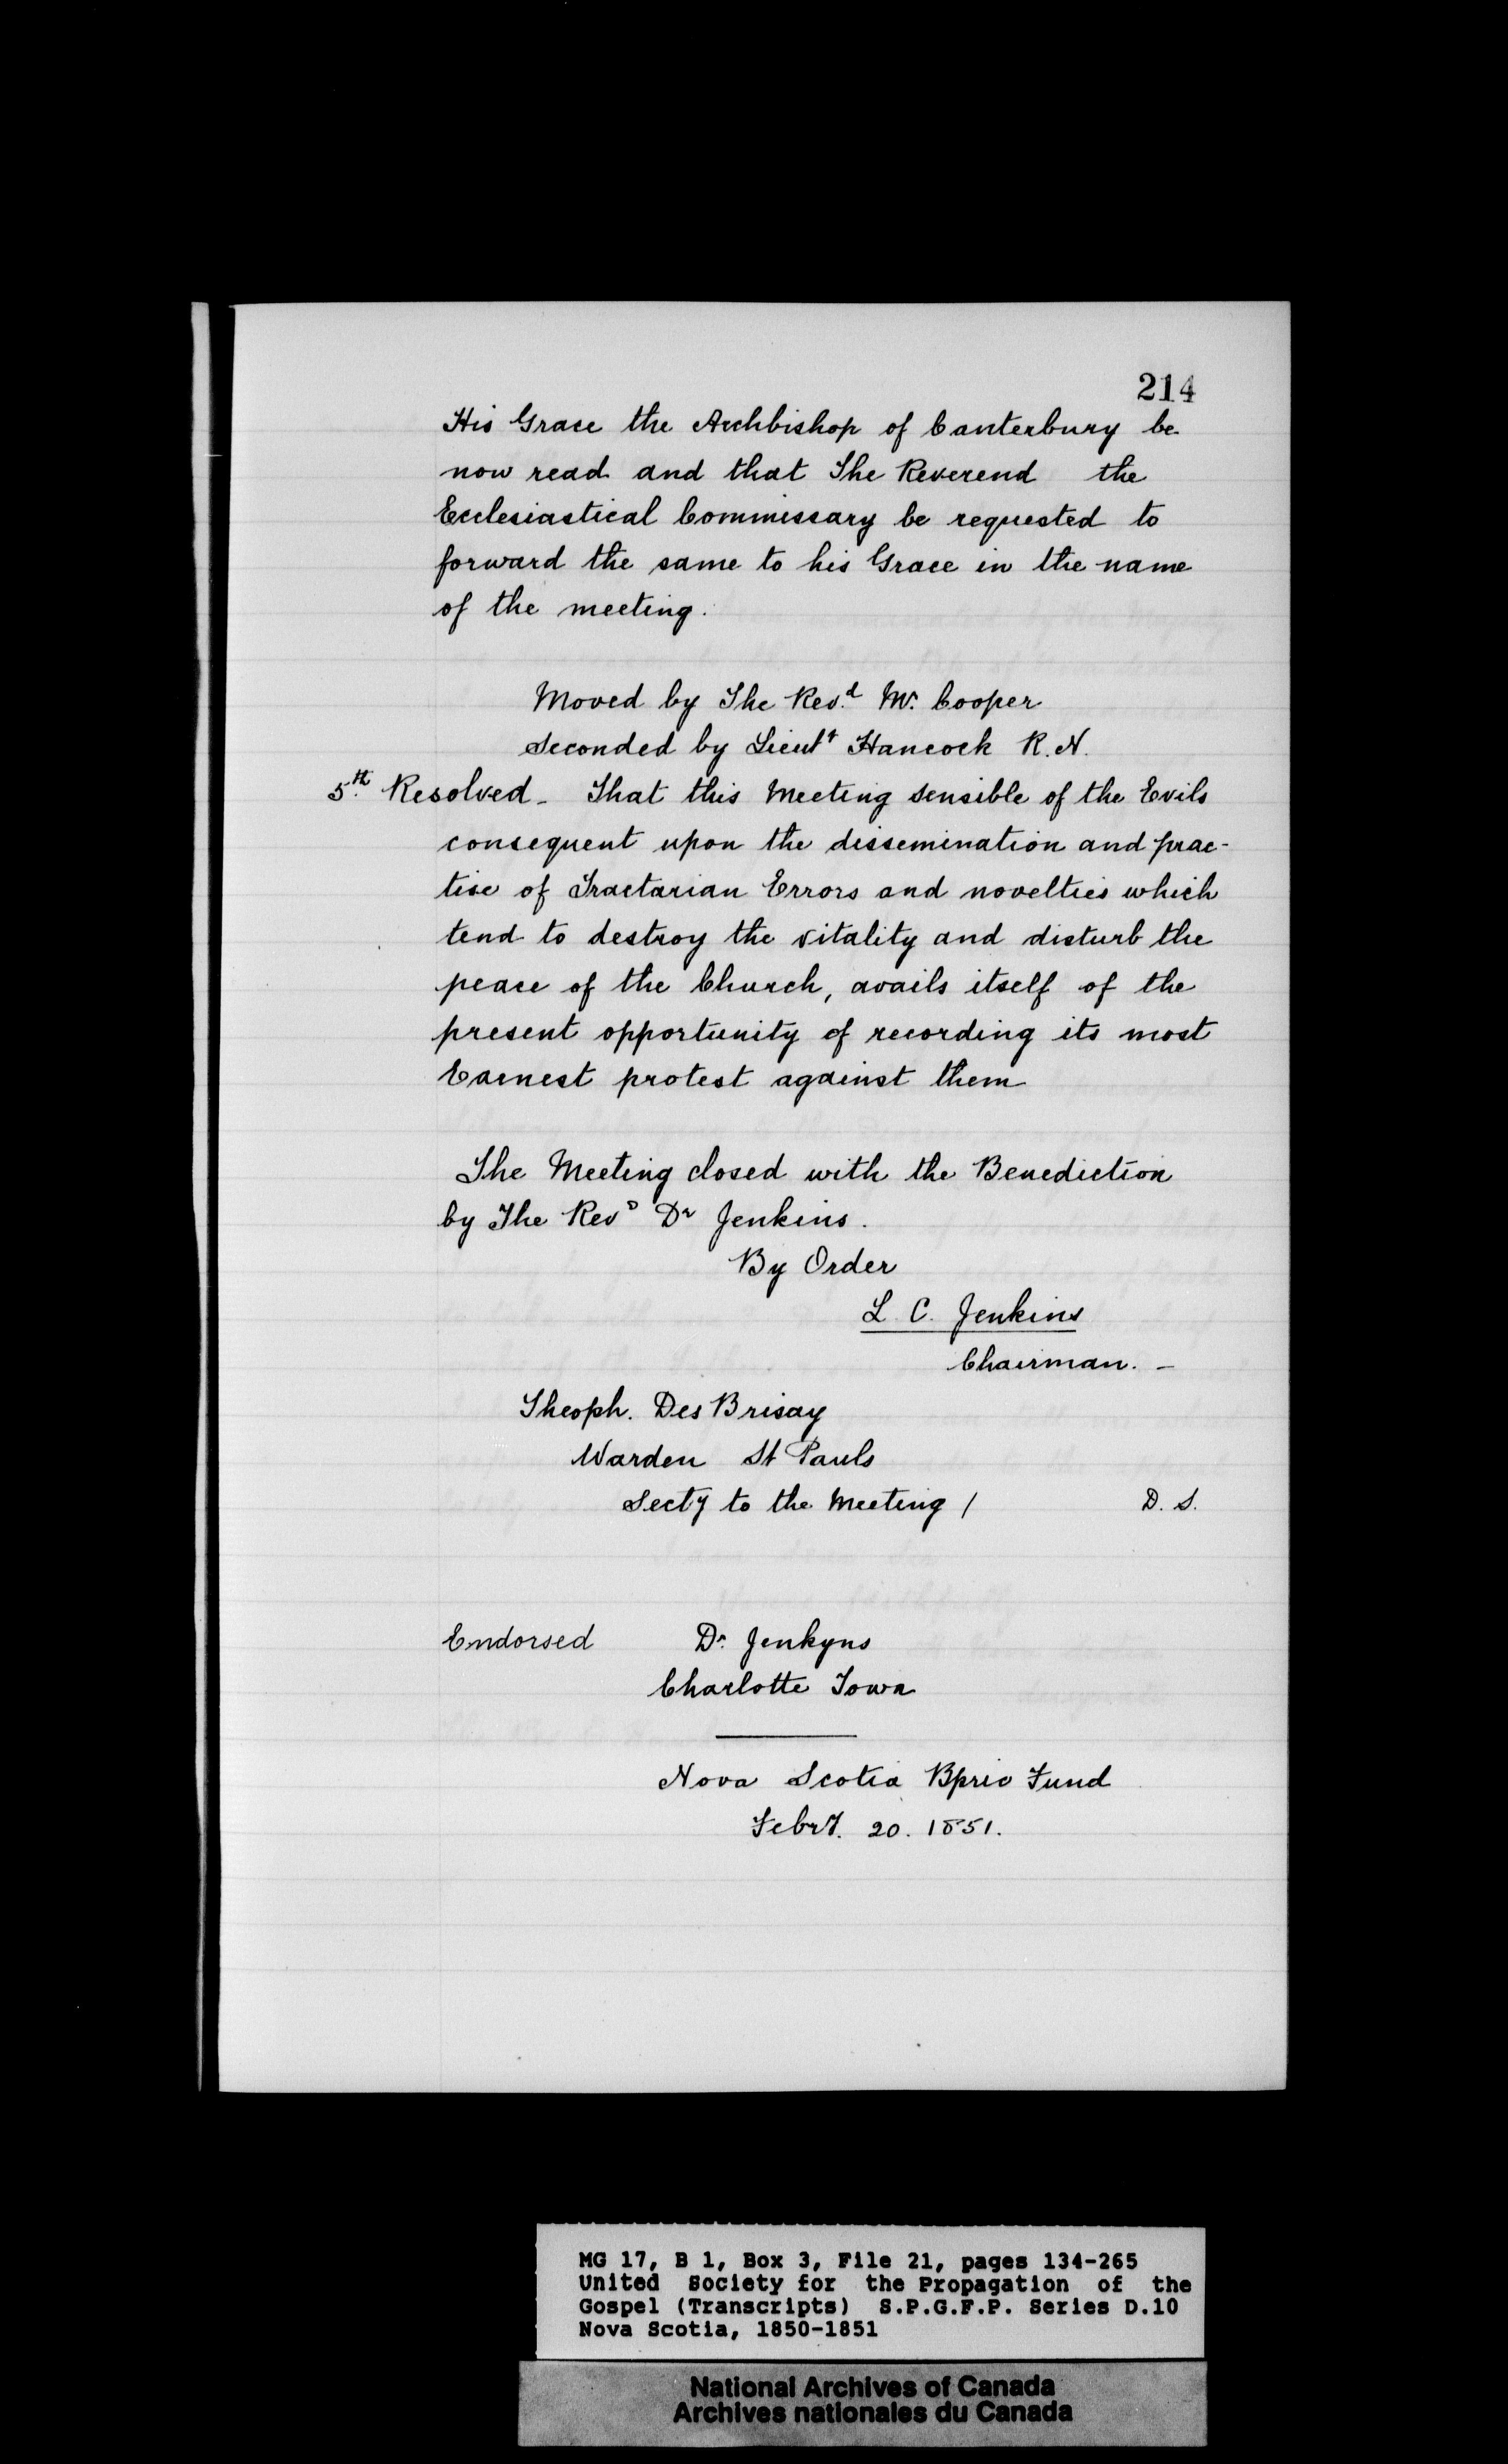 214
His Grace the Archbishop of Canterbury be
now read and that The Reverend the
Ecclesiastical Commissary be requested to
forward the same to his Grace in the name
of the meeting.
Moved by The Rev.d Mr. Cooper
Seconded by Lieut Hancock R.N.
5th. Resolved - That this Meeting sensible of the Evils
consequent upon the dissemination and prac-
tise of Tractarian Errors and novelties which
tend to destroy the vitality and disturb the
peace of the Church, avails itself of the
present opportunity of recording its most
Earnest protest against them
The Meeting closed with the Benediction
by The RevD Dr Jenkins.
By Order
L. C. Jenkins
Chairman. -
Theoph. Des Brisay
Warden St Pauls
Secty to the Meeting /
D. S.
Endorsed Dr. Jenkyns
Charlotte Town
Nova Scotia Bpric Fund
Febry. 20. 1851.
MG 17, B 1, Box 3, File 21, pages 134-265
United Society for the Propagation of the
Gospel (Transcripts) S.P.G.F.P. Series D.10
Nova Scotia, 1850-1851
National Archives of Canada
Archives nationales du Canada